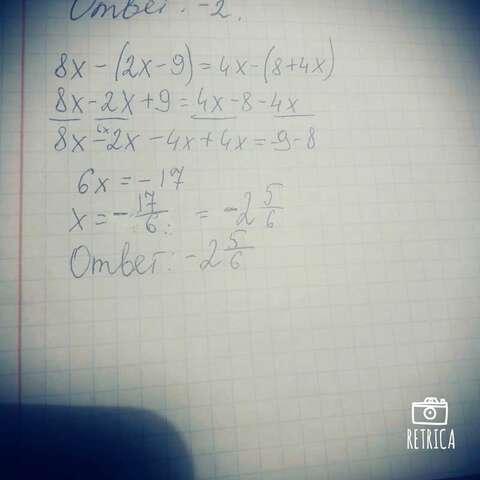 Ответ: -2.
8x - (2x - 9) = 4x - (8 + 4x)
8x - 2x + 9 = 4x - 8 - 4x
6x
8x - 2x - 4x + 4x = -9 - 8
6x = -17
x = -17/6 = -2 5/6
Ответ: -2 5/6
RETRICA